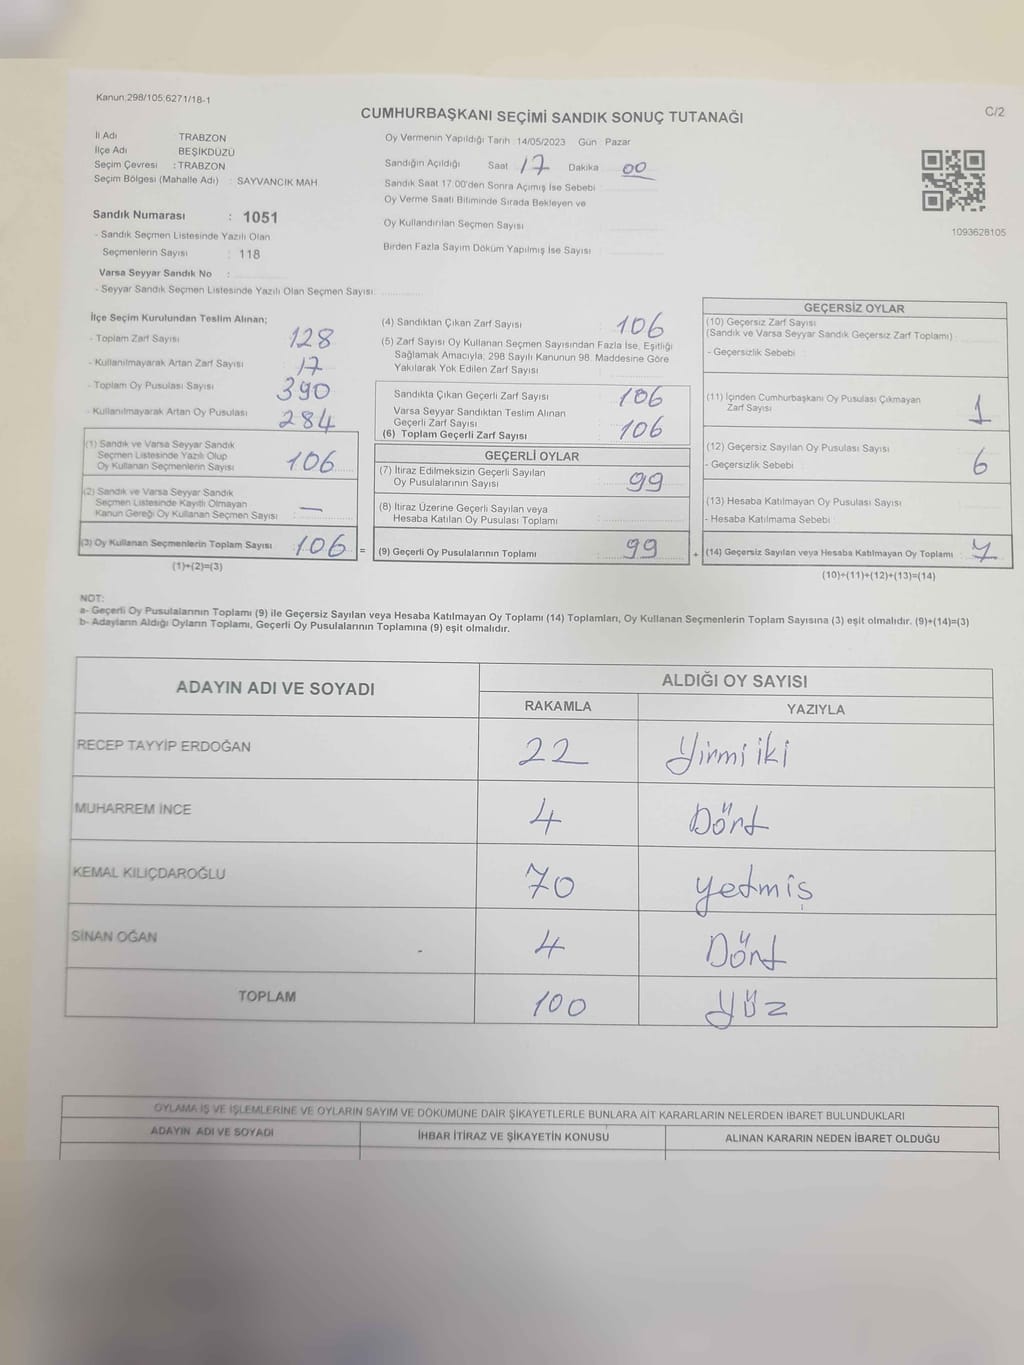 Kanun:298/105;6271/18-1
CUMHURBAŞKANI SEÇİMİ SANDIK SONUÇ TUTANAĞI
C/2
İl Adı TRABZON
İlçe Adı BEŞİKDÜZÜ
Seçim Çevresi : TRABZON
Seçim Bölgesi (Mahalle Adı) : SAYVANCIK MAH
Oy Vermenin Yapıldığı Tarih : 14/05/2023 Gün Pazar
Sandığın Açıldığı Saat 17 Dakika 00
Sandık Saat 17:00'den Sonra Açımış İse Sebebi
Oy Verme Saati Bitiminde Sırada Bekleyen ve
Oy Kullandırılan Seçmen Sayısı
Birden Fazla Sayım Döküm Yapılmış İse Sayısı
1093628105
Sandık Numarası : 1051
- Sandık Seçmen Listesinde Yazılı Olan
Seçmenlerin Sayısı : 118
Varsa Seyyar Sandık No :
- Seyyar Sandık Seçmen Listesinde Yazılı Olan Seçmen Sayısı:
İlçe Seçim Kurulundan Teslim Alınan;
- Toplam Zarf Sayısı 128
- Kullanılmayarak Artan Zarf Sayısı 17
- Toplam Oy Pusulası Sayısı 390
- Kullanılmayarak Artan Oy Pusulası 284
(1) Sandık ve Varsa Seyyar Sandık
Seçmen Listesinde Yazılı Olup
Oy Kullanan Seçmenlerin Sayısı 106
(2) Sandık ve Varsa Seyyar Sandık
Seçmen Listesinde Kayıtlı Olmayan
Kanun Gereği Oy Kullanan Seçmen Sayısı : —
(3) Oy Kullanan Seçmenlerin Toplam Sayısı 106 =
(1)+(2)=(3)
(4) Sandıktan Çıkan Zarf Sayısı 106
(5) Zarf Sayısı Oy Kullanan Seçmen Sayısından Fazla İse, Eşitliği
Sağlamak Amacıyla, 298 Sayılı Kanunun 98. Maddesine Göre
Yakılarak Yok Edilen Zarf Sayısı
Sandıkta Çıkan Geçerli Zarf Sayısı 106
Varsa Seyyar Sandıktan Teslim Alınan
Geçerli Zarf Sayısı
(6) Toplam Geçerli Zarf Sayısı 106
GEÇERLİ OYLAR
(7) İtiraz Edilmeksizin Geçerli Sayılan
Oy Pusulalarının Sayısı 99
(8) İtiraz Üzerine Geçerli Sayılan veya
Hesaba Katılan Oy Pusulası Toplamı
(9) Geçerli Oy Pusulalarının Toplamı 99 +
GEÇERSİZ OYLAR
(10) Geçersiz Zarf Sayısı
(Sandık ve Varsa Seyyar Sandık Geçersiz Zarf Toplamı) :
- Geçersizlik Sebebi
(11) İçinden Cumhurbaşkanı Oy Pusulası Çıkmayan
Zarf Sayısı 1
(12) Geçersiz Sayılan Oy Pusulası Sayısı
- Geçersizlik Sebebi 6
(13) Hesaba Katılmayan Oy Pusulası Sayısı
- Hesaba Katılmama Sebebi
(14) Geçersiz Sayılan veya Hesaba Katılmayan Oy Toplamı : 7
(10)+(11)+(12)+(13)=(14)
NOT:
a- Geçerli Oy Pusulalarının Toplamı (9) ile Geçersiz Sayılan veya Hesaba Katılmayan Oy Toplamı (14) Toplamları, Oy Kullanan Seçmenlerin Toplam Sayısına (3) eşit olmalıdır. (9)+(14)=(3)
b- Adayların Aldığı Oyların Toplamı, Geçerli Oy Pusulalarının Toplamına (9) eşit olmalıdır.
ADAYIN ADI VE SOYADI
ALDIĞI OY SAYISI
RAKAMLA YAZIYLA
RECEP TAYYİP ERDOĞAN 22 Yirmi iki
MUHARREM İNCE 4 Dört
KEMAL KILIÇDAROĞLU 70 yetmiş
SİNAN OĞAN 4 Dört
TOPLAM 100 yüz
OYLAMA İŞ VE İŞLEMLERİNE VE OYLARIN SAYIM VE DÖKÜMÜNE DAİR ŞİKAYETLERLE BUNLARA AİT KARARLARIN NELERDEN İBARET BULUNDUKLARI
ADAYIN ADI VE SOYADI İHBAR İTİRAZ VE ŞİKAYETİN KONUSU ALINAN KARARIN NEDEN İBARET OLDUĞU